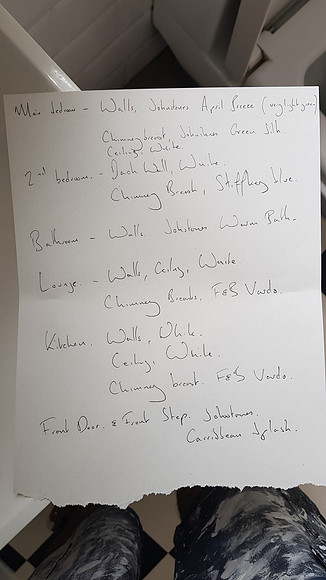 Main bedroom - Walls, Johnstones April Breeze (very light green)
Chimney breast, Johnstones Green Silk.
Ceiling White.
2nd bedroom. - Walls, White.
Chimney Breast, Stiffkey blue.
Bathroom - Walls. Johnstones Warm
Lounge. - Walls, Ceiling, White.
Chimney Breasts, F&B Vardo.
Kitchen. Walls, White.
Ceiling, White.
Chimney breast. F&B Vardo.
Front Door. & Front Step. Johnstones.
Carribbean Splash.